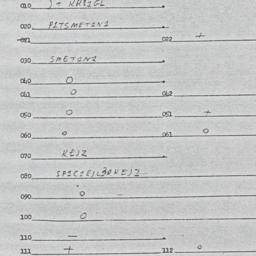 010
020 PITSMETINI
021 022 +
030 SMETINI
040 O
041 O 042
050 O 051 +
060 O 061 O
070 KEIZ
080
090 O
100 O
110 —
111 + 112 O